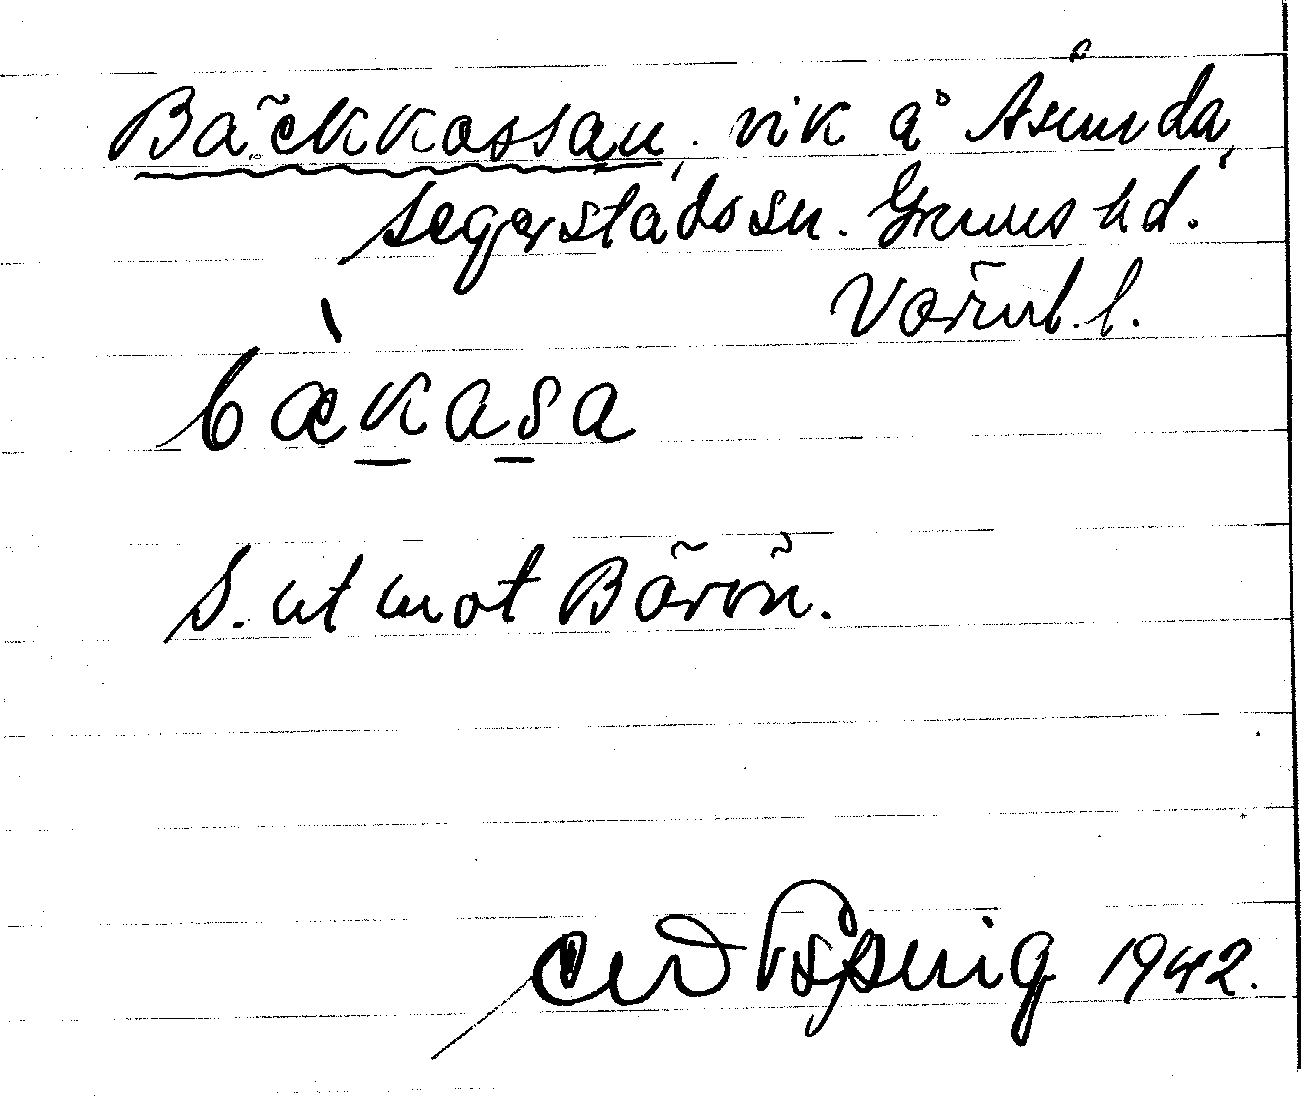 Bäckkossan, vik å Åsunda,
Segerstads sn. Grums hd.
Värml. l.
bækasa
S. ut mot Bärön.
1942.